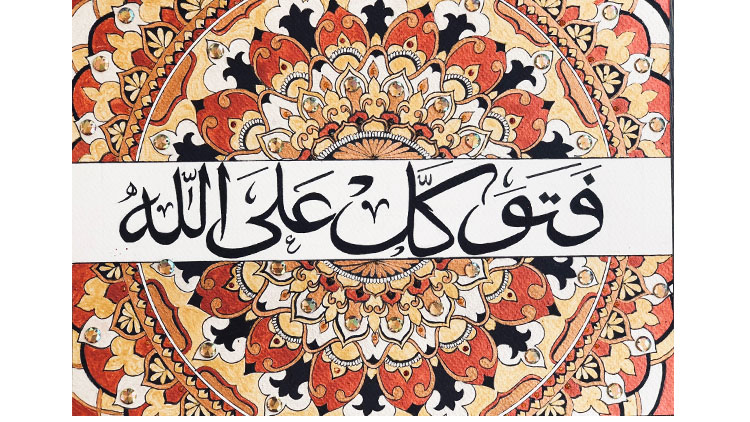 فَتَوَكَّلْ عَلَى اللّٰه